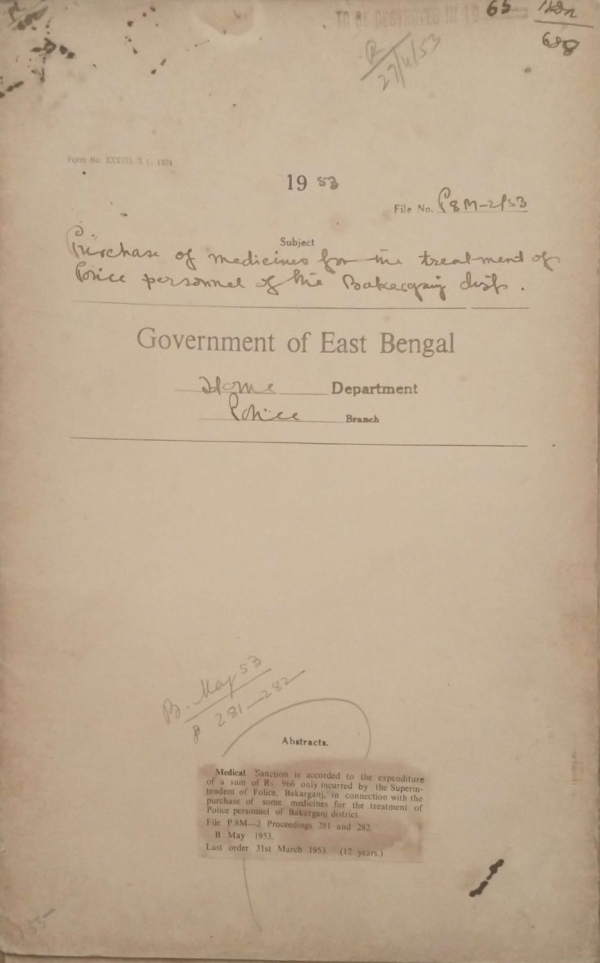 TO BE DESTROYED IN
65
688
27/4/53
Form No.
19 53
File No. P8M-2/53
Subject
Purchase of medicines for the treatment of
Police personnel of the Bakarganj dist.
Government of East Bengal
Home Department
Police Branch
B. May 53
P 281-282
Abstracts.
Medical Sanction is accorded to the expenditure
of a sum of Rs 966 only incurred by the Superin-
tendent of Police, Bakarganj, in connection with the
purchase of some medicines for the treatment of
Police personnel of Bakarganj district.
File P.8M—2 Proceedings 281 and 282.
B May 1953.
Last order 31st March 1953 (12 years.)